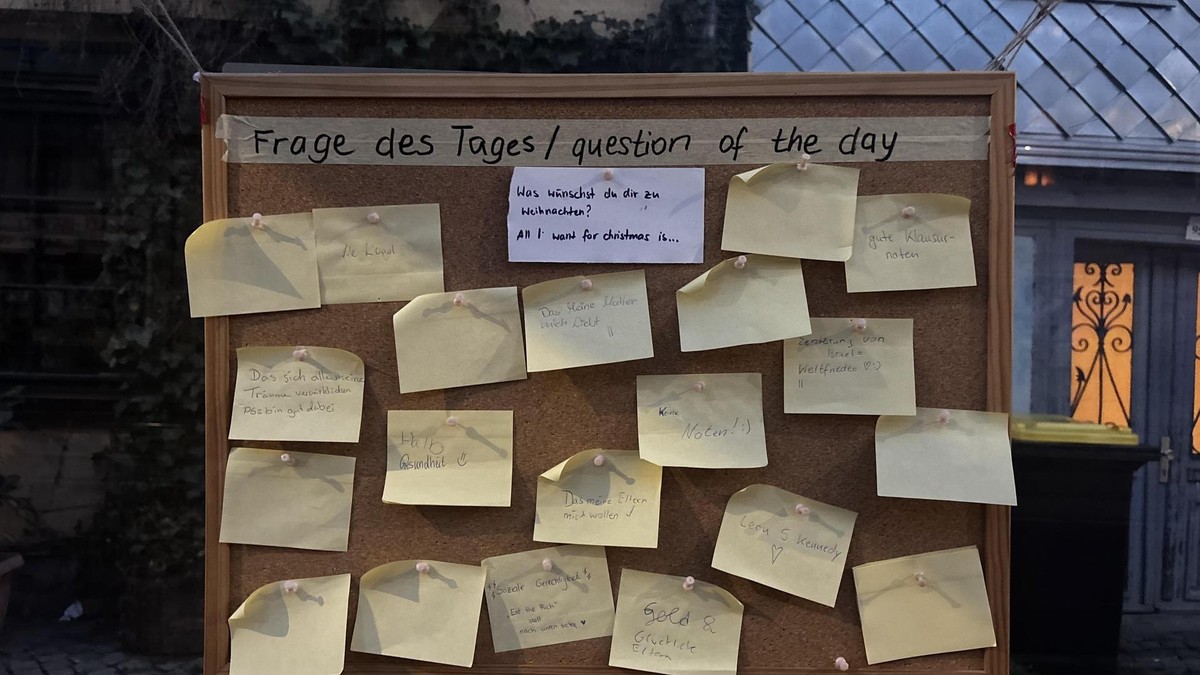 Frage des Tages / question of the day
Was wünschst du dir zu
Weihnachten?
All I want for christmas is...
gute Klausur-
noten
Das Meine Mutter
mich liebt
Zerstörung von
Israel =
Weltfrieden ♡:)
Das sich alle meine
Träume verwirklichen
PS: bin gut dabei
Keine
Noten! :)
Gesundheit
Das meine Eltern
mich wollen
Leon S Kennedy
♡
Soziale Gerechtigkeit
"Eat the Rich"
Gold &
Glückliche
Eltern